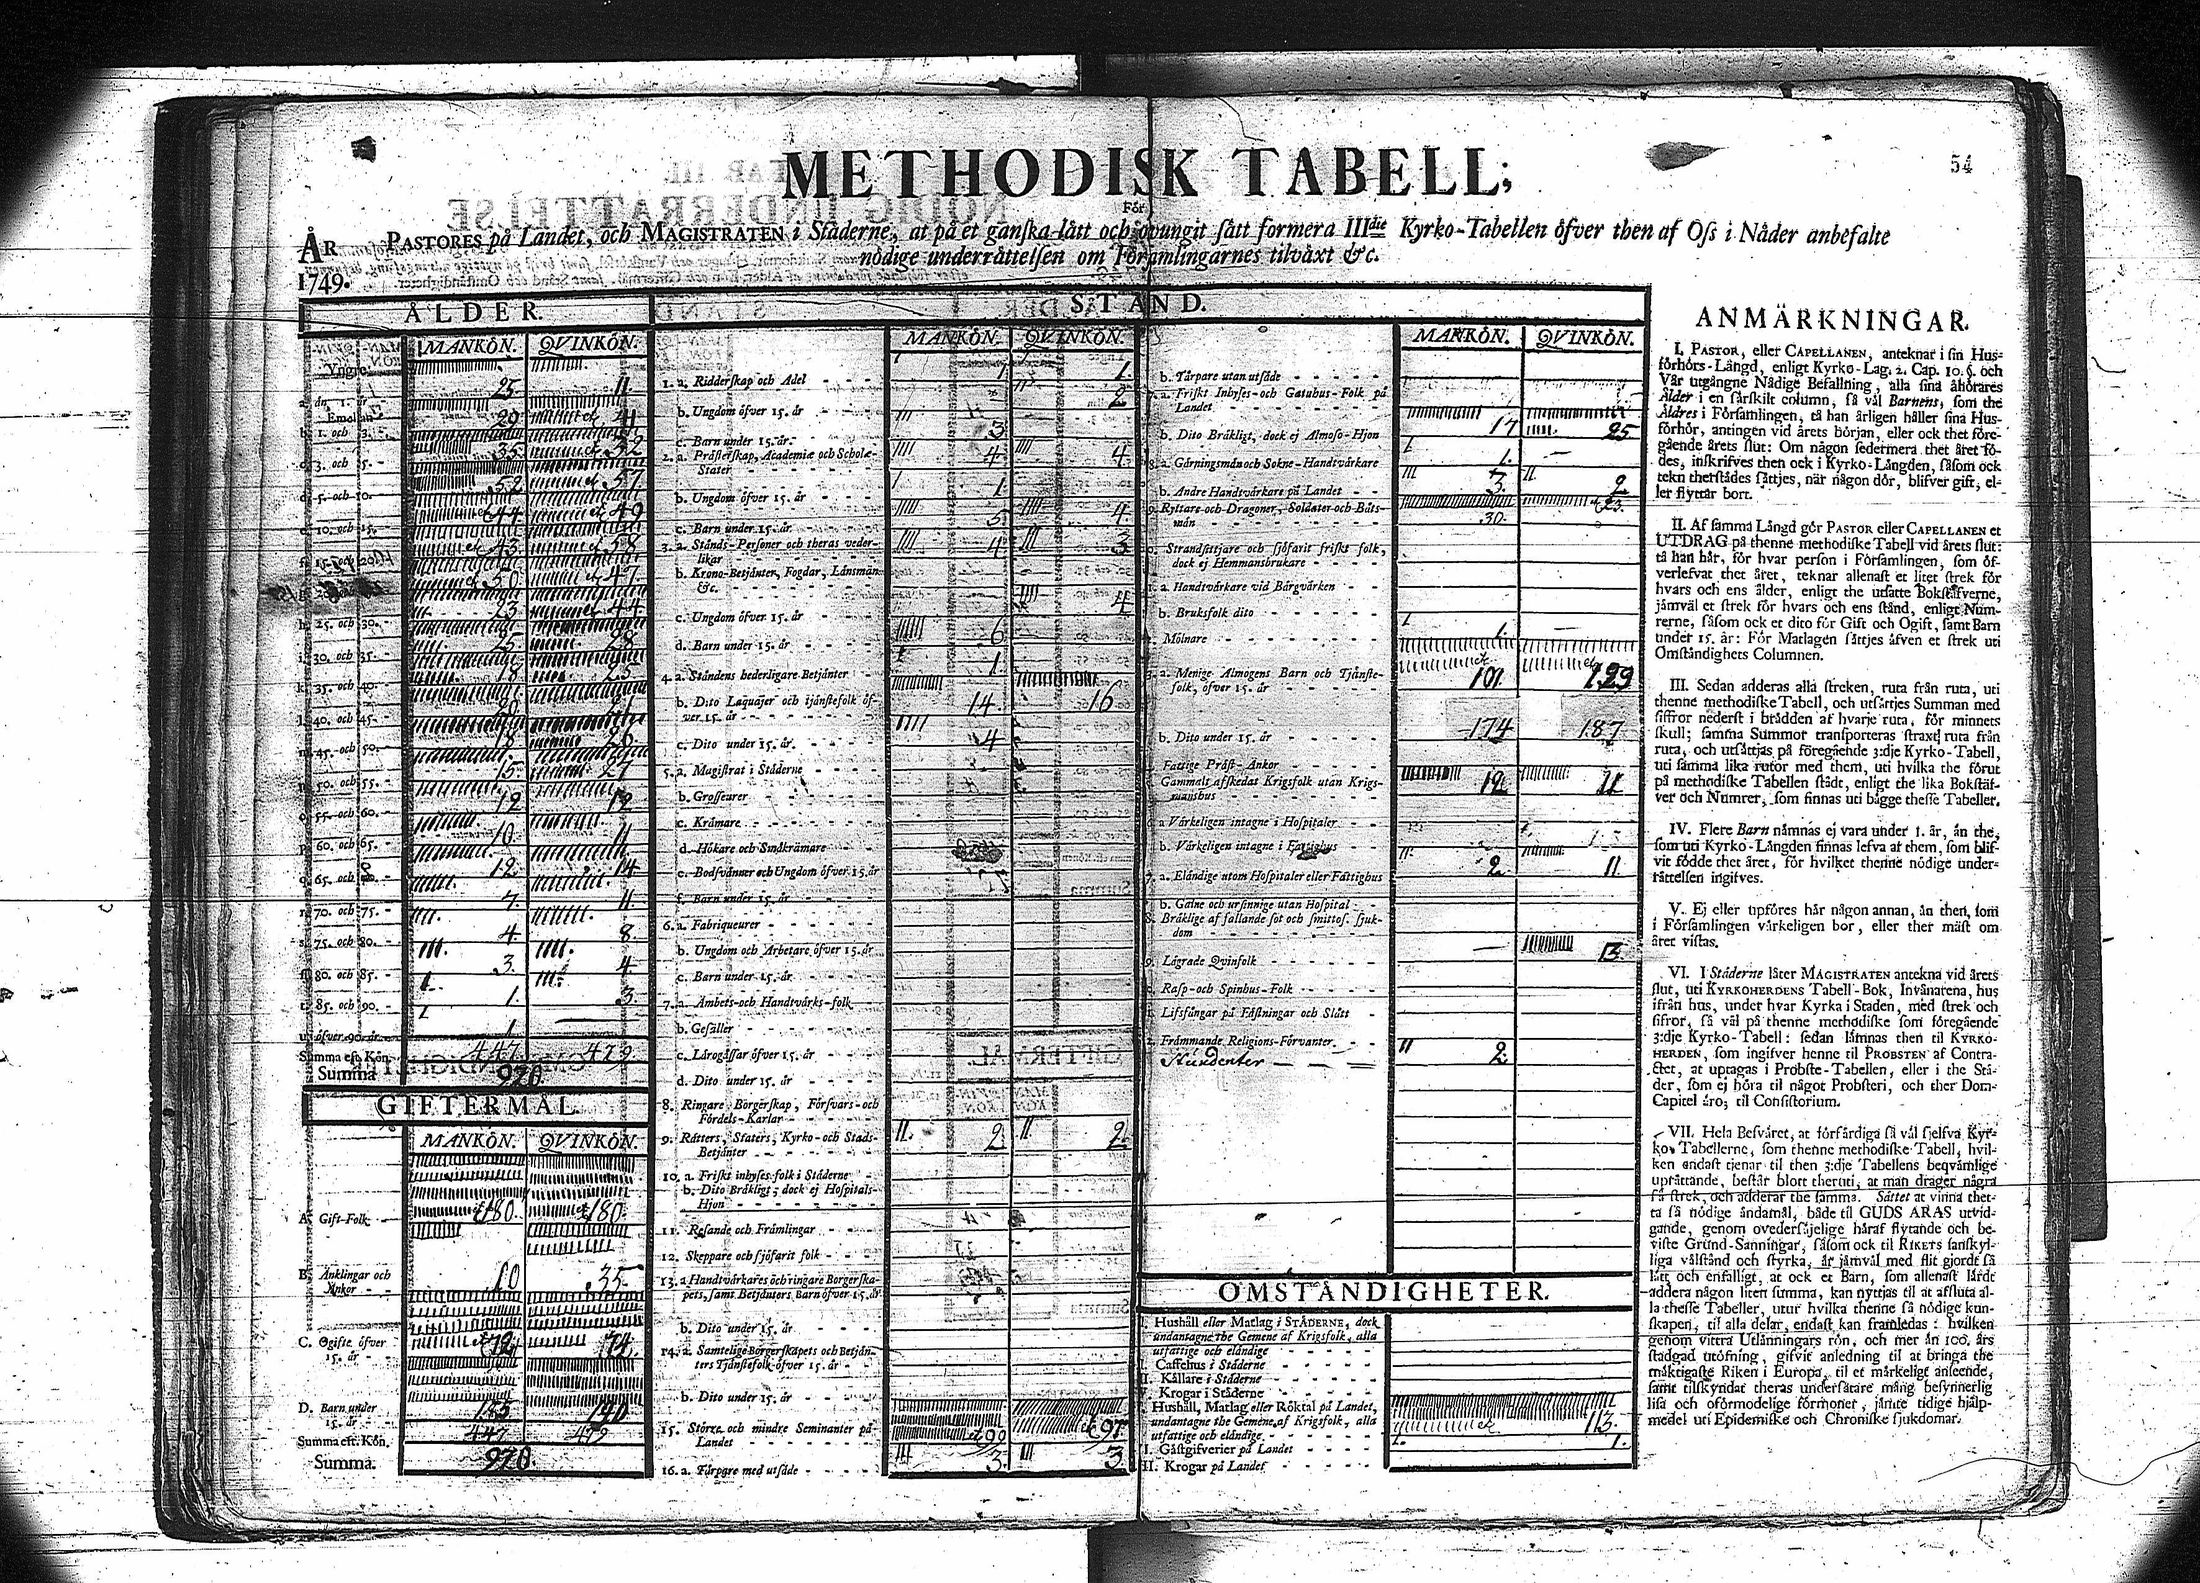 54
METHODISK TABELL;
För
ÅR PASTORES på Landet, och MAGISTRATEN i Ståderne, at på et ganska lått och otvungit sått formera IIIdie Kyrko-Tabellen öfver then af Oss i Nåder anbefalte
1749. nödige underråttelsen om Församlingarnes tilvåxt &c.
ÅLDER.
MANKÖN. QVINKÖN.
Yngre
än 1. år 25 11.
Emellan
b. 1. och 3. 29 et 41
c. 3. och 5. 35 et 32
d. 5. och 10. 52 et 57
e. 10. och 15. et 44 et 49
et 43 et 58
et 30 et 47
h. 25. och 30. 23 et 44
i. 30. och 35. 25 28
k. 35. och 40. 18 25
l. 40. och 45. 20 21
m. 45. och 50. 18 26
n. 50. och 55. 15. 27
o. 55. och 60. 12 12
p. 60. och 65. 10 11
q. 65. och 70. 12 14
r. 70. och 75. 7 11.
s. 75. och 80. 4 8.
80. och 85. 3. 4
t. 85. och 90. 1. 3
u. öfver 90. år 1 —
Summa eft. Kön. 447 479.
Summa 920.
GIFTERMÅL
MANKÖN. QVINKÖN.
A. Gift-Folk - et 180. et 180.
B. Änklingar och
Änkor - - 10 35
C. Ogifte öfver
15. år - et 72 74.
D. Barn under
15. år - - 190
Summa eft. Kön. 447 479
Summa. 920.
STÅND.
MANKÖN. QVINKÖN.
1. a. Ridderskap och Adel 1 1.
b. Ungdom öfver 15. år 2
c. Barn under 15. år. 3
2. a. Pråsterskap, Academiæ och Scholæ-
Stater 4 4.
b. Ungdom öfver 15. år 1
c. Barn under 15. år 5 4.
3. a. Stånds-Personer och theras veder-
likar 4 3
b. Krono-Betjånter, Fogdar, Lånsmån
&c.
c. Ungdom öfver 15. år 4
d. Barn under 15. år 6
4. a. Ståndens hederligare Betjånter 1
b. Dito Laquajer och tjånstefolk öf-
ver 15. år 14. 16
c. Dito under 15. år. 4
5. a. Magistrat i Ståderne
b. Grosseurer
c. Kråmare
d. Hökare och Småkråmare
e. Bodsvånner och Ungdom öfver 15. år
f. Barn under 15. år
6. a. Fabriqueurer
b. Ungdom och Arbetare öfver 15. år
c. Barn under 15. år
7. a. Ämbets-och Handtvårks-folk
b. Gesåller
c. Lårogåssar öfver 15. år
d. Dito under 15. år
8. Ringare Borgerskap, Försvars-och
Fördels-Karlar
9. Råtters, Staters, Kyrko-och Stads-
Betjånter 2 2
10. a. Friskt inhyses-folk i Ståderne
b. Dito Bråkligt; dock ej Hospitals-
Hjon
11. Resande och Fråmlingar
12. Skeppare och sjöfarit folk
13. a Handtvårkares och ringare Borgerska-
pets, samt Betjånters Barn öfver 15. år
b. Dito under 15. år
14. a. Samtelige Borgerskapets och Betjån-
ters Tjånstefolk öfver 15. år
b. Dito under 15. år
15. Större och mindre Seminanter på
Landet et 90 et 97.
16. a. Tårpare med utsåde 3. 3
MANKÖN. QVINKÖN.
b. Tårpare utan utsåde
a. Friskt Inhyses-och Gatuhus-Folk på
Landet 17 25
b. Dito Bråkligt, dock ej Almoso-Hjon 1. —
a. Gårningsmån och Sokne-Handtvårkare 3. 2
b. Andre Handtvårkare på Landet
Ryttare och Dragoner, Soldater och Båts-
mån 30. et 23.
Strandsittjare och sjöfarit friskt folk,
dock ej Hemmansbrukare
a. Handtvårkare vid Bårgvårken
b. Bruksfolk dito
Mölnare 1.
a. Menige Almogens Barn och Tjånste-
folk, öfver 15. år et 101. et 129
b. Dito under 15. år 174 187
Fattige Pråst-Änkor
Gammalt afskedat Krigsfolk utan Krigs-
manshus 12 11
a Vårkeligen intagne i Hospitaler
b. Vårkeligen intagne i Fattighus
a. Elåndige utom Hospitaler eller Fåttighus 2. 11.
b. Galne och ursinnige utan Hospital
Bråklige af fallande sot och smittos. sjuk-
dom
Lågrade Qvinfolk — 13.
Rasp-och Spinhus-Folk
Lifsfångar på Fåstningar och Slått
Fråmmande Religions-Förvanter
Studenter 2.
OMSTÅNDIGHETER.
Hushåll eller Matlag i STÅDERNE, dock
undantagne the Gemene af Krigsfolk, alla
utfattige och elåndige
Caffehus i Ståderne
Kållare i Ståderne
Krogar i Ståderne
Hushåll, Matlag eller Röktal på Landet,
undantagne the Gemene af Krigsfolk, alla
utfattige och elåndige 113.
Gåstgifverier på Landet 1.
II. Krogar på Landet
ANMÄRKNINGAR.
I. PASTOR, eller CAPELLANEN, anteknar i sin Hus-
förhörs-Långd, enligt Kyrko-Lag. 2. Cap. 10. §. och
Vår utgångne Nådige Befallning, alla sina åhörares
Ålder i en sårskilt column, så vål Barnens, som the
Äldres i Församlingen, tå han årligen håller sina Hus-
förhör, antingen vid årets början, eller ock thet före-
gående årets slut: Om någon sedermera thet året fö-
des, inskrifves then ock i Kyrko-Långden, såsom ock
tekn therstådes såttjes, når någon dör, blifver gift, el-
ler flyttar bort.
II. Af samma Långd gör PASTOR eller CAPELLANEN et
UTDRAG på thenne methodiske Tabell vid årets slut:
tå han hår, för hvar person i Församlingen, som öf-
verlefvat thet året, teknar allenast et litet strek för
hvars och ens ålder, enligt the utsatte Bokståfverne,
jåmvål et strek för hvars och ens stånd, enligt Num-
rerne, såsom ock et dito för Gift och Ogift, samt Barn
under 15. år: För Matlagen såttjes åfven et strek uti
Omståndighets Columnen.
III. Sedan adderas alla streken, ruta från ruta, uti
thenne methodiske Tabell, och utsåttjes Summan med
siffror nederst i brådden af hvarje ruta, för minnets
skull; samma Summor transporteras straxt ruta från
ruta, och utsåttjas på föregående 3:dje Kyrko-Tabell,
uti samma lika rutor med them, uti hvilka the förut
på methodiske Tabellen stådt, enligt the lika Bokståf-
ver och Numrer, som finnas uti bågge thesse Tabeller.
IV. Flere Barn nåmnas ej vara under 1. år, ån the,
som uti Kyrko-Långden finnas lefva af them, som blif-
vit födde thet året, för hvilket thenne nödige under-
råttelsen ingifves.
V. Ej eller upföres hår någon annan, ån then, som
i Församlingen vårkeligen bor, eller ther måst om
året vistas.
VI. I Ståderne låter MAGISTRATEN antekna vid årets
slut, uti KYRKOHERDENS Tabell-Bok, Invånarena, hus
ifrån hus, under hvar Kyrka i Staden, med strek och
sifror, så vål på thenne methodiske som föregående
3:dje Kyrko-Tabell: sedan låmnas then til KYRKO-
HERDEN, som ingifver henne til PROBSTEN af Contra-
ctet, at uptagas i Probste-Tabellen, eller i the Stå-
der, som ej höra til något Probsteri, och ther Dom-
Capitel åro; til Consistorium.
VII. Hela Besvåret, at förfårdiga så vål sjelfva Kyr-
ko-Tabellerne, som thenne methodiske Tabell, hvil-
ken endast tjenar til then 3:dje Tabellens beqvåmlige
upråttande, består blott theruti, at man drager några
få strek, och adderar the samma. Såttet at vinna thet-
ta så nödige åndamål, både til GUDS ÄRAS utvid-
gande, genom ovedersåjelige håraf flytande och be-
viste Grund-Sanningar, såsom ock til RIKETS sanskyl-
liga vålstånd och styrka, år jåmvål med flit gjordt så
lått och enfalligt, at ock et Barn, som allenast lårdt
addera någon liten summa, kan nyttjas til at afsluta al-
la thesse Tabeller, utur hvilka thenne så nödige kun-
skapen, til alla delar, endast kan framledas: hvilken
genom vittra Utlånningars rön, och mer ån 100. års
stadgad utöfning, gifvit anledning til at bringa the
måktigaste Riken i Europa, til et mårkeligt anseende,
samt tilskyndat theras undersåtare mång besynnerlig
lisa och oförmodelige förmoner, jåmte tidige hjålp-
medel uti Epidemiske och Chroniske sjukdomar.